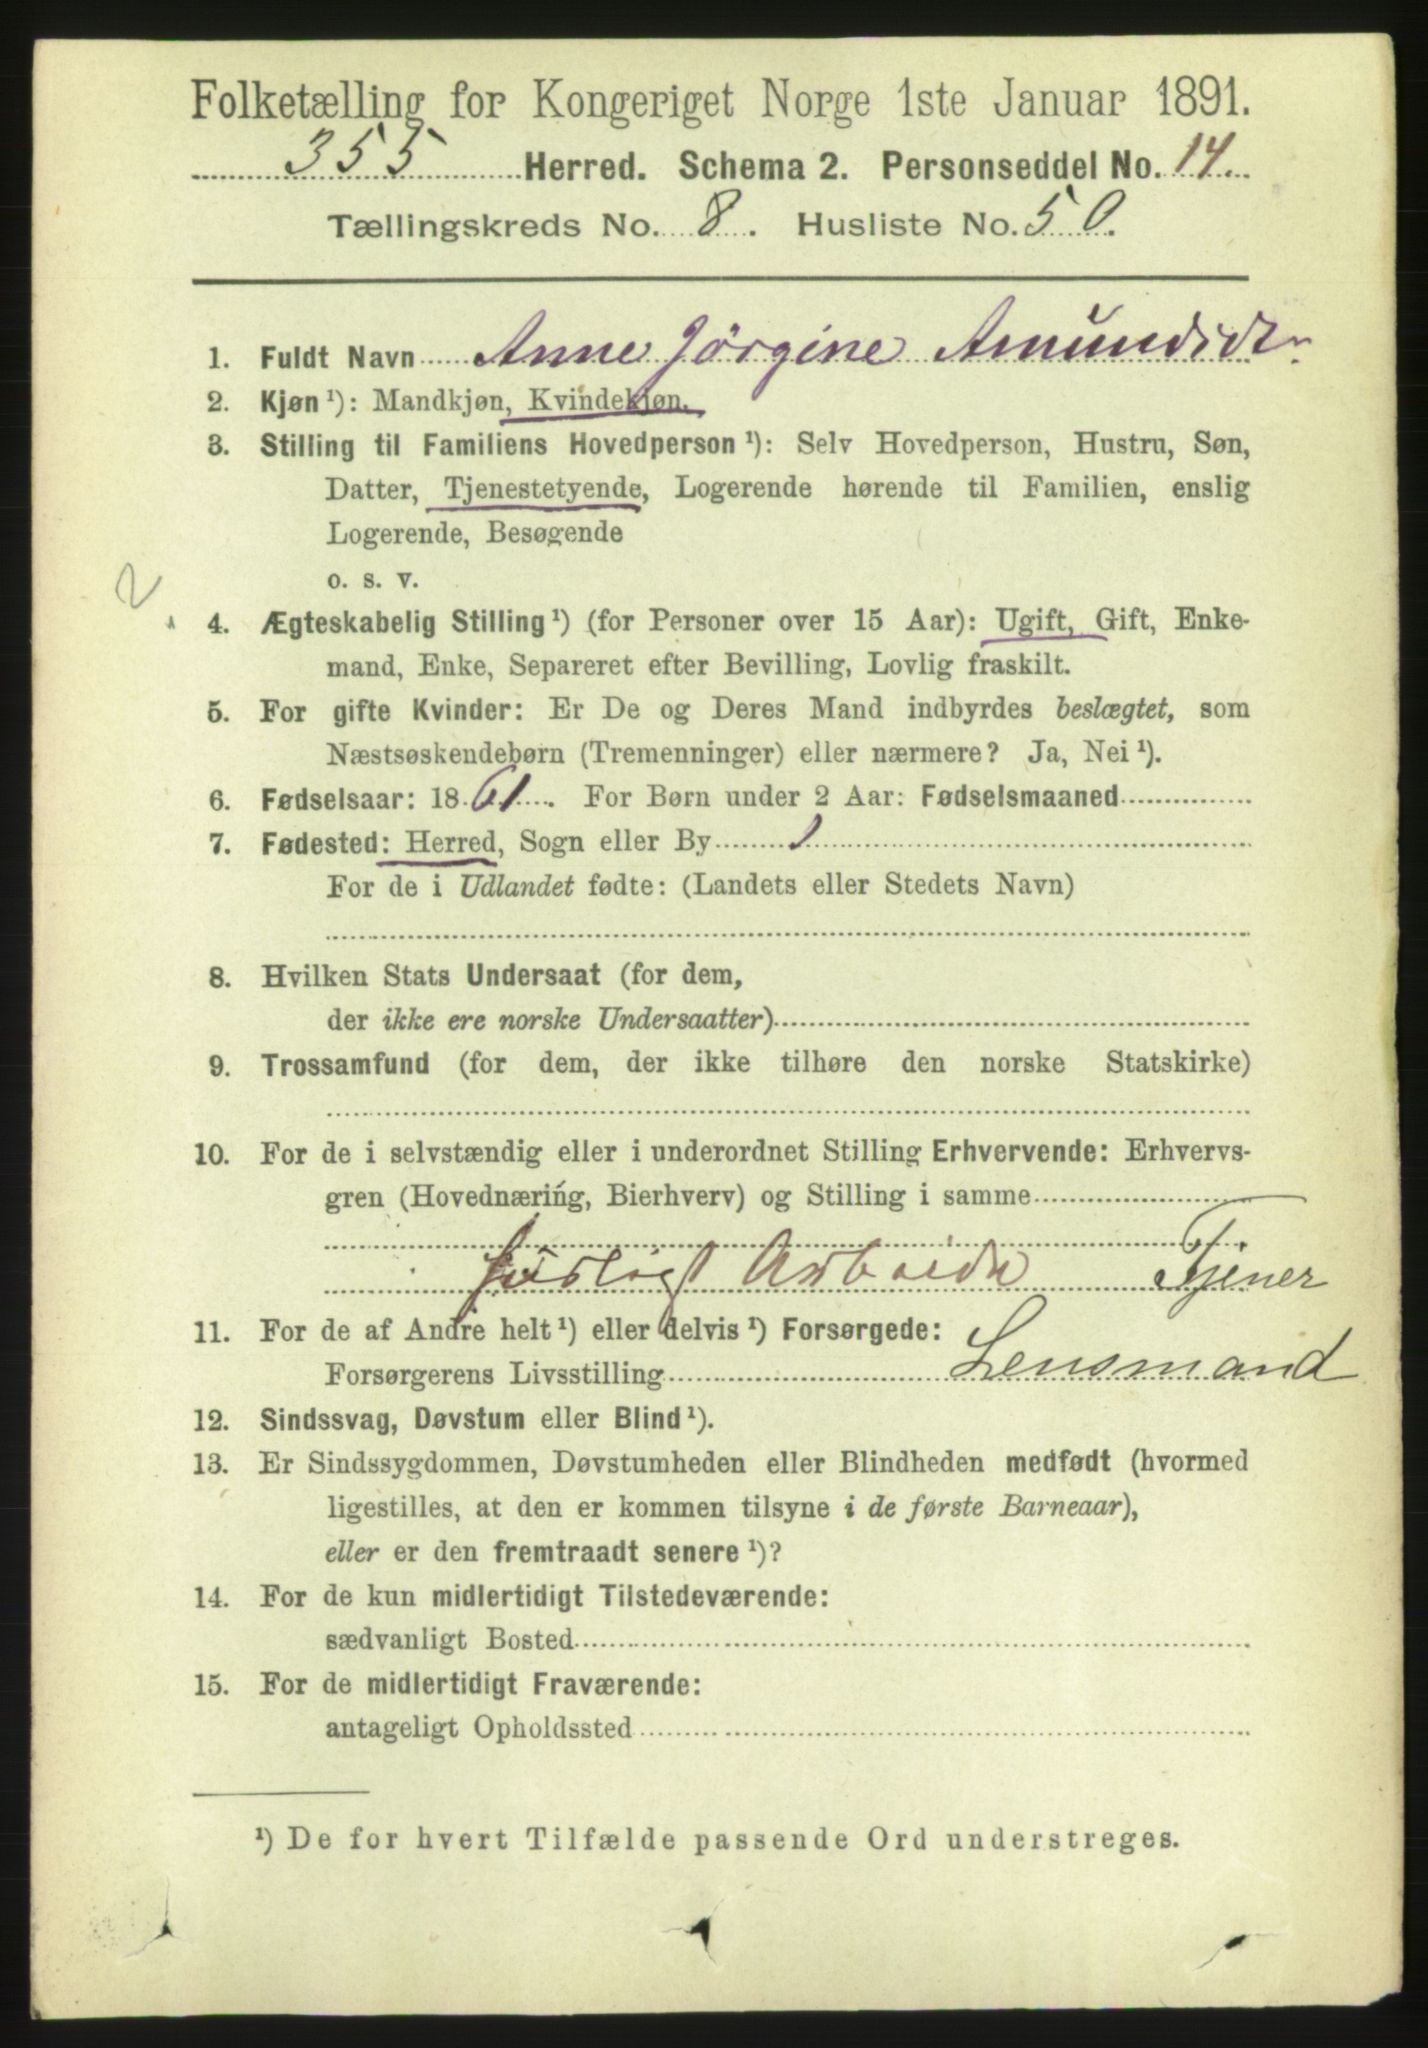 Folketælling for Kongeriget Norge 1ste Januar 1891.
355 Herred. Schema 2. Personseddel No. 14.
Tællingskreds No. 8. Husliste No. 50.
1. Fuldt Navn Anne Jörgine
2. Kjøn ¹): Mandkjøn, Kvindekjøn.
3. Stilling til Familiens Hovedperson ¹): Selv Hovedperson, Hustru, Søn,
Datter, Tjenestetyende, Logerende hørende til Familien, enslig
Logerende, Besøgende
o. s. v.
2
4. Ægteskabelig Stilling ¹) (for Personer over 15 Aar): Ugift, Gift, Enke-
mand, Enke, Separeret efter Bevilling, Lovlig fraskilt.
5. For gifte Kvinder: Er De og Deres Mand indbyrdes beslægtet, som
Næstsøskendebørn (Tremenninger) eller nærmere? Ja, Nei ¹).
6. Fødselsaar: 1861. For Børn under 2 Aar: Fødselsmaaned
7. Fødested: Herred, Sogn eller By 1
For de i Udlandet fødte: (Landets eller Stedets Navn)
8. Hvilken Stats Undersaat (for dem,
der ikke ere norske Undersaatter)
9. Trossamfund (for dem, der ikke tilhøre den norske Statskirke)
10. For de i selvstændig eller i underordnet Stilling Erhvervende: Erhvervs-
gren (Hovednæring, Bierhverv) og Stilling i samme
Tjener
11. For de af Andre helt ¹) eller delvis ¹) Forsørgede:
Forsørgerens Livsstilling Lensmand
12. Sindssvag, Døvstum eller Blind ¹).
13. Er Sindssygdommen, Døvstumheden eller Blindheden medfødt (hvormed
ligestilles, at den er kommen tilsyne i de første Barneaar),
eller er den fremtraadt senere ¹)?
14. For de kun midlertidigt Tilstedeværende:
sædvanligt Bosted
15. For de midlertidigt Fraværende:
antageligt Opholdssted
¹) De for hvert Tilfælde passende Ord understreges.